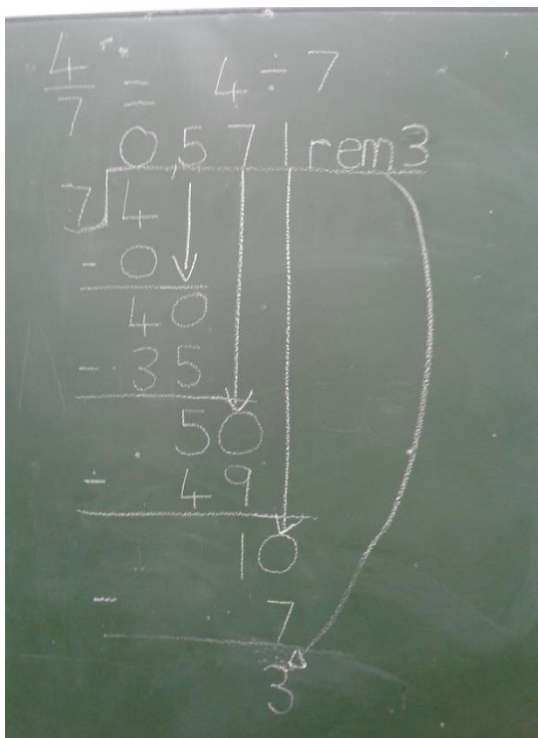 4/7 = 4 ÷ 7
0,571 rem3
7 4
- 0
40
- 35
50
- 49
10
- 7
3